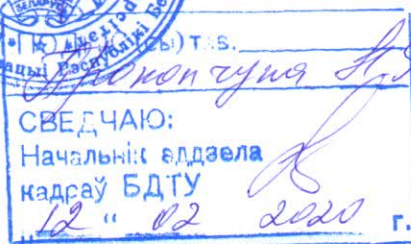 БЕЛАРУСЬ
ацыі Рэспублікі Бе
т.в.
Прокопчука Н
СВЕДЧАЮ:
Начальнік аддзела
кадраў БДТУ
"12" 02 2020 г.